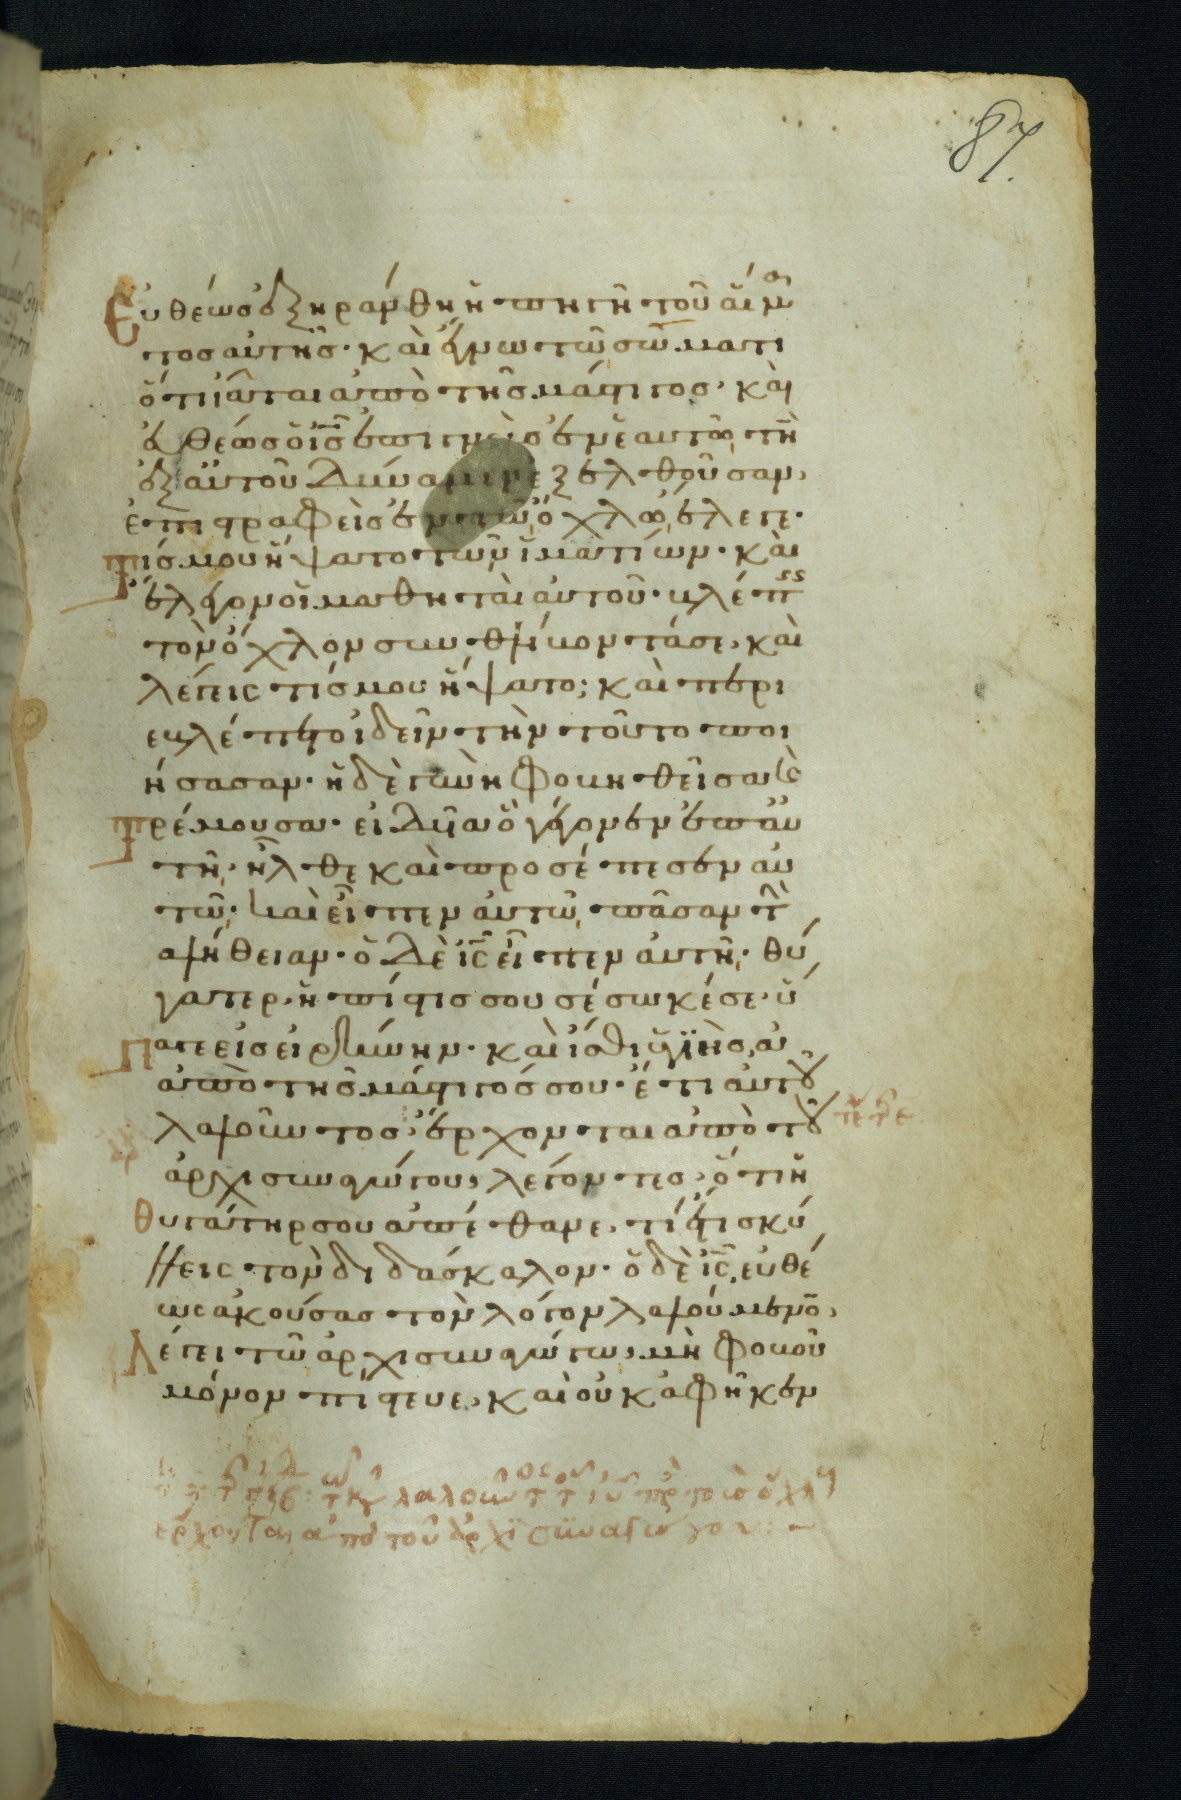 87.
Εὐθέως ἐξηράνθη ἡ πηγὴ τοῦ αἵμα
τος αὐτῆς· καὶ ἔγνω τῶ σώματι
ὅτι ἴαται ἀπὸ τῆς μάστιγος· καὶ
εὐθέως ὁ ις ἐπιγνοὺς ἐν ἑαυτῶ τὴν
ἐξ αὐτοῦ δύναμιν ἐξελθοῦσαν,
ἐπιστραφεὶς ἐν τῶ ὄχλω, ἔλεγε·
τίς μου ἥψατο τῶν ἱματίων· καὶ
ἔλεγον οἱ μαθηταὶ αὐτοῦ· βλέπεις
τὸν ὄχλον συνθλίβοντά σε, καὶ
λέγεις τίς μου ἥψατο; καὶ περι
εβλέπετο ἰδεῖν τὴν τοῦτο ποι
ήσασαν· ἡ δὲ γυνὴ φοβηθεῖσα κὲ
τρέμουσα· εἰδυῖα ὃ γέγονεν ἐπ αὐ
τῆ, ἦλθε καὶ προσέπεσεν αὐ
τῶ· καὶ εἶπεν αὐτῶ πᾶσαν τὴν
ἀλήθειαν· ὁ δὲ ις εἶπεν αὐτῆ· θύ
γατερ, ἡ πίστις σου σέσωκέ σε· ὕ
παγε εἰς εἰρήνην· καὶ ἴσθι ὑγιὴς
ἀπὸ τῆς μάστιγός σου· ἔτι αὐτοῦ
λαλοῦντος, ἔρχονται ἀπὸ τοῦ
ἀρχισυναγώγου, λέγοντες, ὅτι ἡ
θυγάτηρ σου ἀπέθανε, τί ἔτι σκύ
λλεις τὸν διδάσκαλον· ὁ δὲ ις εὐθέ
ως ἀκούσας τὸν λόγον λαλούμενον,
λέγει τῶ ἀρχισυναγώγω, μὴ φοβοῦ
μόνον πίστευε, καὶ οὐκ ἀφῆκεν
λαλοῦντος τοῦ ιυ πρὸς τοὺς ὄχλους
ἔρχονται ἀπὸ τοῦ ἀρχισυναγώγου